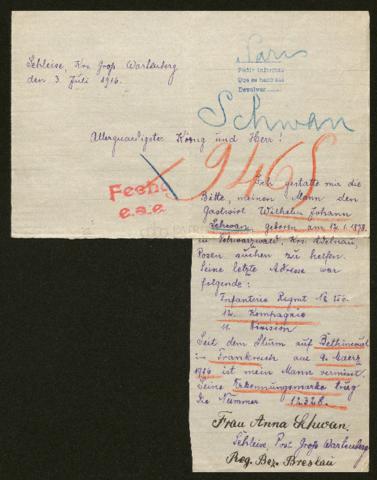 Schleise, Krs. Groß Wartenberg
den 3. Juli 1916.
Paris
Pedir informes
Que se haga
Devolver
Schwan
Allergnädigster König und Herr!
9465
Fecha
e.s.e.
Ich gestatte mir die
Bitte, meinen Mann den
Gastwirt Wilhelm Johann
Schwan, geboren am 12.1.1878.
in Schwarzwald, Krs. Adelnau,
Posen suchen zu helfen.
Seine letzte Adresse war
folgende:
Infanterie Regmt №
12. Kompagnie
11. Division
Seit dem Sturm auf Bethincourt
in Frankreich am 9. Maerz
1916 ist mein Mann vermisst.
Seine Erkennungsmarke trug
die Nummer 12328.
Frau Anna Schwan.
Schleise, Post Groß Wartenberg
Reg. Bez. Breslau